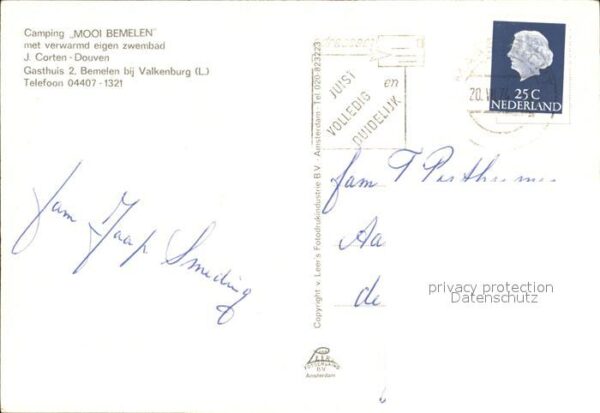 Camping „MOOI BEMELEN"
met verwarmd eigen zwembad
J. Corten-Douven
Gasthuis 2, Bemelen bij Valkenburg (L.)
Telefoon 04407-1321
fam Jaap Smeding
Copyright v. Leer's Fotodrukindustrie B.V. - Amsterdam - Tel. 020-823223
JUIST
en
VOLLEDIG
DUIDELIJK
20. VII.
25 C
NEDERLAND
fam T Posthumus
Aa
de
privacy protection
Datenschutz
LEER
B.V.
Amsterdam